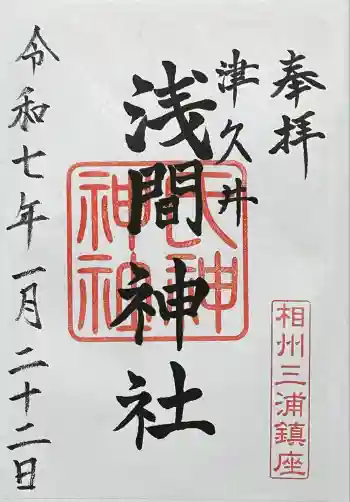 奉拝
相州三浦鎮座
津久井
浅間神社
氏神
神社
令和七年一月二十二日